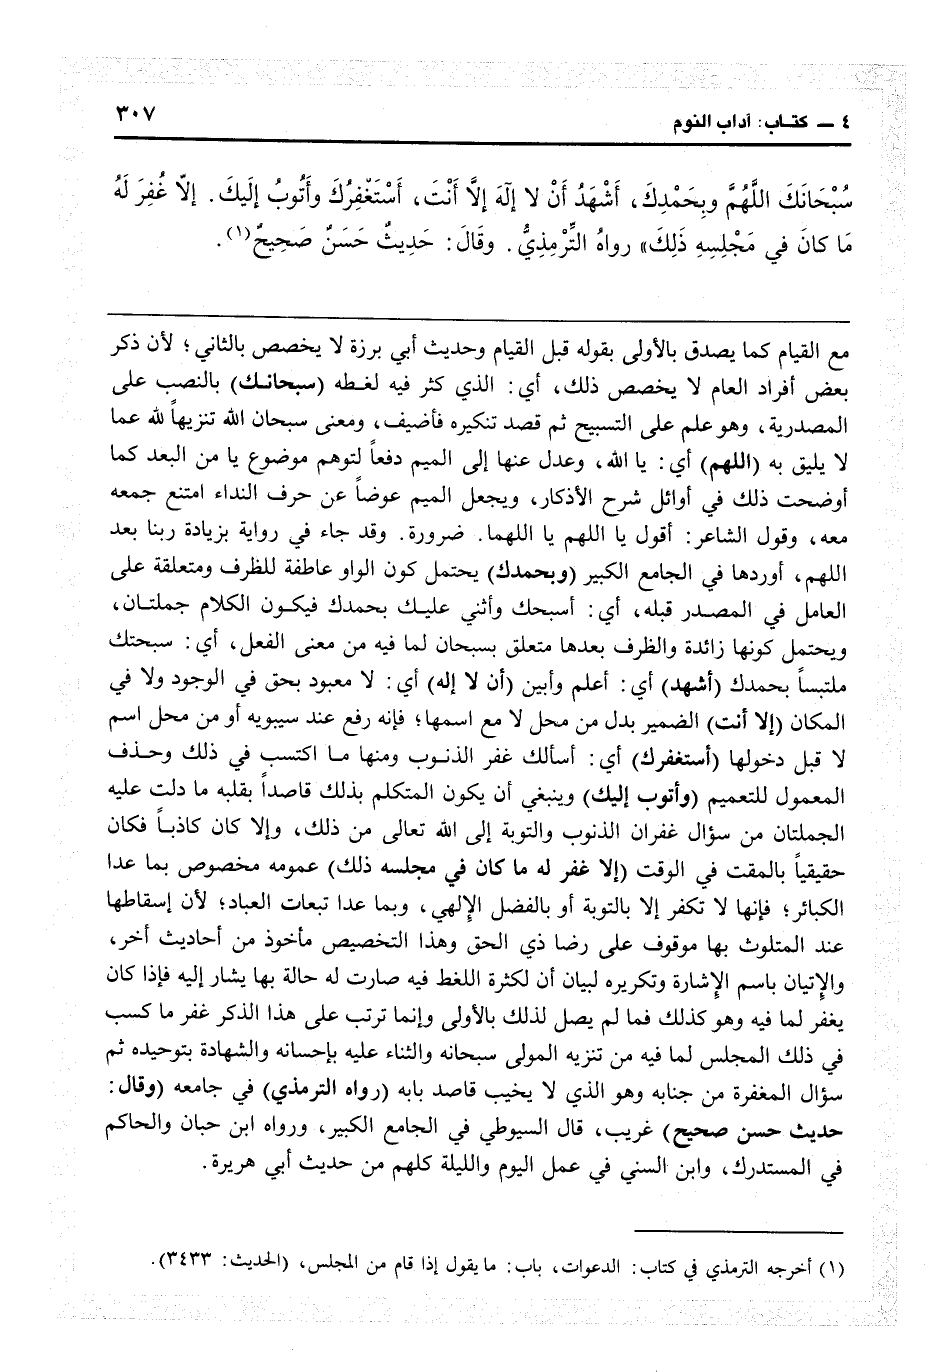 ٤ ــ كتـاب: آداب النوم
٣٠٧
سُبْحَانَكَ اللَّهُمَّ وبِحَمْدِكَ، أَشْهَدُ أَنْ لا إلَهَ إلَّا أَنْتَ، أَسْتَغْفِرُكَ وأَتُوبُ إلَيكَ. إلّا غُفِرَ لَهُ
مَا كانَ في مَجْلِسِهِ ذَلِكَ» رواهُ التِّرْمِذِيُّ. وقَالَ: حَدِيثٌ حَسَنٌ صَحِيحٌ(١).
مع القيام كما يصدق بالأولى بقوله قبل القيام وحديث أبي برزة لا يخصص بالثاني؛ لأن ذكر
بعض أفراد العام لا يخصص ذلك، أي: الذي كثر فيه لغـطه (سبحانـك) بالنصب على
المصدرية، وهو علم على التسبيح ثم قصد تنكيره فأضيف، ومعنى سبحان الله تنزيهاً لله عما
لا يليق به (اللهم) أي: يا الله، وعدل عنها إلى الميم دفعاً لتوهم موضوع يا من البعد كما
أوضحت ذلك في أوائل شرح الأذكار، ويجعل الميم عوضاً عن حرف النداء امتنع جمعه
معه، وقول الشاعر: أقول يا اللهم يا اللهما. ضرورة. وقد جاء في رواية بزيادة ربنا بعد
اللهم، أوردها في الجامع الكبير (وبحمدك) يحتمل كون الواو عاطفة للظرف ومتعلقة على
العامل في المصـدر قبله، أي: أسبحك وأثني عليـك بحمدك فيكـون الكلام جملتـان،
ويحتمل كونها زائدة والظرف بعدها متعلق بسبحان لما فيه من معنى الفعل، أي: سبحتك
ملتبساً بحمدك (أشهد) أي: أعلم وأبين (أن لا إله) أي: لا معبود بحق في الوجود ولا في
المكان (إلا أنت) الضمير بدل من محل لا مع اسمها؛ فإنه رفع عند سيبويه أو من محل اسم
لا قبل دخولها (أستغفرك) أي: أسألك غفر الذنـوب ومنها مـا اكتسب في ذلك وحـذف
المعمول للتعميم (وأتوب إليك) وينبغي أن يكون المتكلم بذلك قاصداً بقلبه ما دلت عليه
الجملتان من سؤال غفران الذنوب والتوبة إلى الله تعالى من ذلك، وإلا كان كاذبـاً فكان
حقيقياً بالمقت في الوقت (إلا غفر له ما كان في مجلسه ذلك) عمومه مخصوص بما عدا
الكبائر؛ فإنها لا تكفر إلا بالتوبة أو بالفضل الإلهي، وبما عدا تبعات العباد؛ لأن إسقاطها
عند المتلوث بها موقوف على رضا ذي الحق وهذا التخصيص مأخوذ من أحاديث أخر،
والإتيان باسم الإشارة وتكريره لبيان أن لكثرة اللغط فيه صارت له حالة بها يشار إليه فإذا كان
يغفر لما فيه وهو كذلك فما لم يصل لذلك بالأولى وإنما ترتب على هذا الذكر غفر ما كسب
في ذلك المجلس لما فيه من تنزيه المولى سبحانه والثناء عليه بإحسانه والشهادة بتوحيده ثم
سؤال المغفرة من جنابه وهو الذي لا يخيب قاصد بابه (رواه الترمذي) في جامعه (وقال:
حديث حسن صحيح) غريب، قال السيوطي في الجامع الكبير، ورواه ابن حبان والحاكم
في المستدرك، وابن السني في عمل اليوم والليلة كلهم من حديث أبي هريرة.
(١) أخرجه الترمذي في كتاب: الدعوات، باب: ما يقول إذا قام من المجلس، (الحديث: ٣٤٣٣).